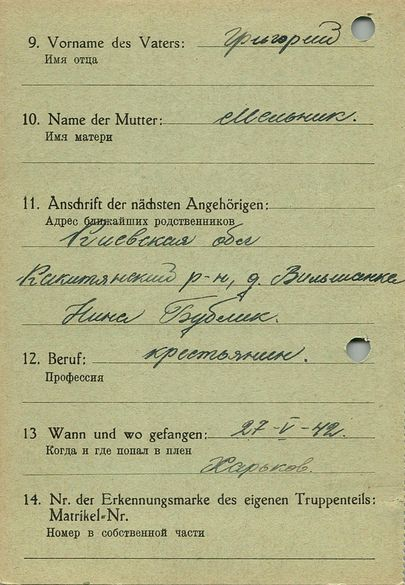 9. Vorname des Vaters: Григорий
Имя отца
10. Name der Mutter: Мельник.
Имя матери
11. Anschrift der nächsten Angehörigen:
Адрес ближайших родственников
Киевская обл
Ракитянский р-н, д. Вильшанка
Нина Бублик.
12. Beruf: крестьянин.
Профессия
13 Wann und wo gefangen: 27-V-42.
Когда и где попал в плен
Харьков.
14. Nr. der Erkennungsmarke des eigenen Truppenteils:
Matrikel-Nr.
Номер в собственной части